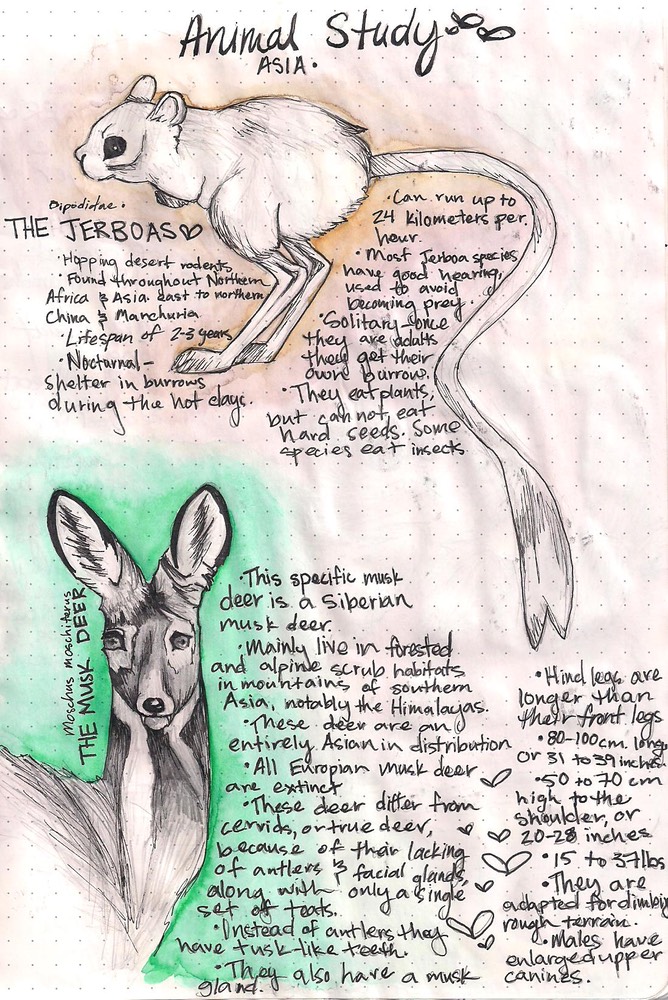 Animal Study
ASIA.
Dipodidae.
THE JERBOAS
·Hopping desert rodents
·Found throughout Northern
Africa & Asia east to northern
China & Manchuria
·Lifespan of 2-3 years
·Nocturnal-
shelter in burrows
during the hot days.
·Can run up to
24 kilometers per
hour.
·Most Jerboa species
have good hearing,
used to avoid
becoming prey.
·Solitary-once
they are adults
they get their
own burrow.
·They eat plants,
but cannot eat
hard seeds. Some
species eat insects.
Moschus moschiferus
THE MUSK DEER
·This specific musk
deer is a Siberian
musk deer.
·Mainly live in forested
and alpine scrub habitats
in mountains of southern
Asia, notably the Himalayas.
·These deer are an
entirely Asian in distribution
·All Europian musk deer
are extinct
·These deer differ from
cervids, or true deer,
because of their lacking
of antlers & facial glands,
along with only a single
set of teats.
·Instead of antlers they
have tusk-like teeth.
·They also have a musk
gland.
·Hind legs are
longer than
their front legs
·80-100cm long
or 31 to 39 inches.
·50 to 70 cm
high to the
shoulder, or
20-28 inches
·15 to 37lbs
·They are
adapted for climbin
rough terrain.
·Males have
enlarged upper
canines.